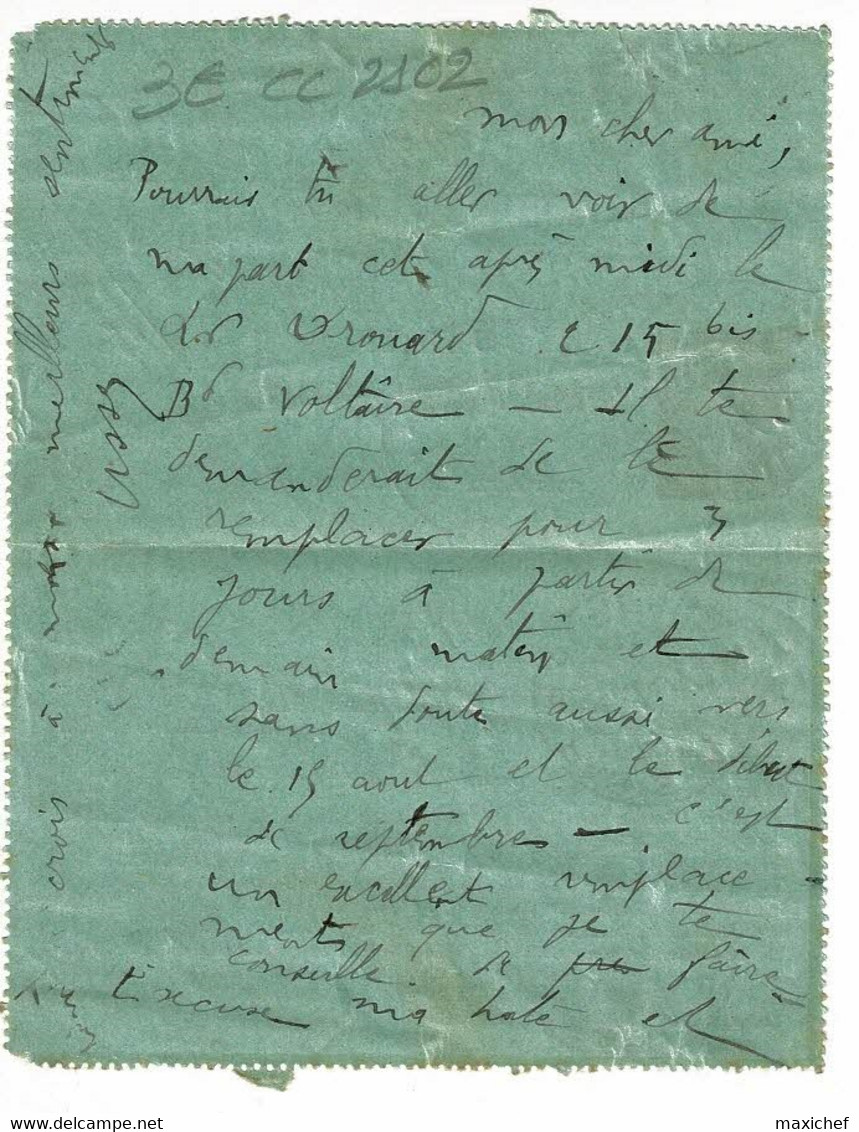 3€ CC 2102
mon cher ami,
Pourrais tu aller voir de
ma part cet après midi le
Dr Drouard 215 bis
Bd Voltaire — Il te
demanderait de le
remplacer pour 3
jours à partir de
demain matin et
sans doute aussi vers
le 15 aout et le début
de septembre — c'est
un excellent remplace-
ments que je te
conseille de faire —
Excuse ma hate et
crois à mes meilleurs sentiments
maxichef